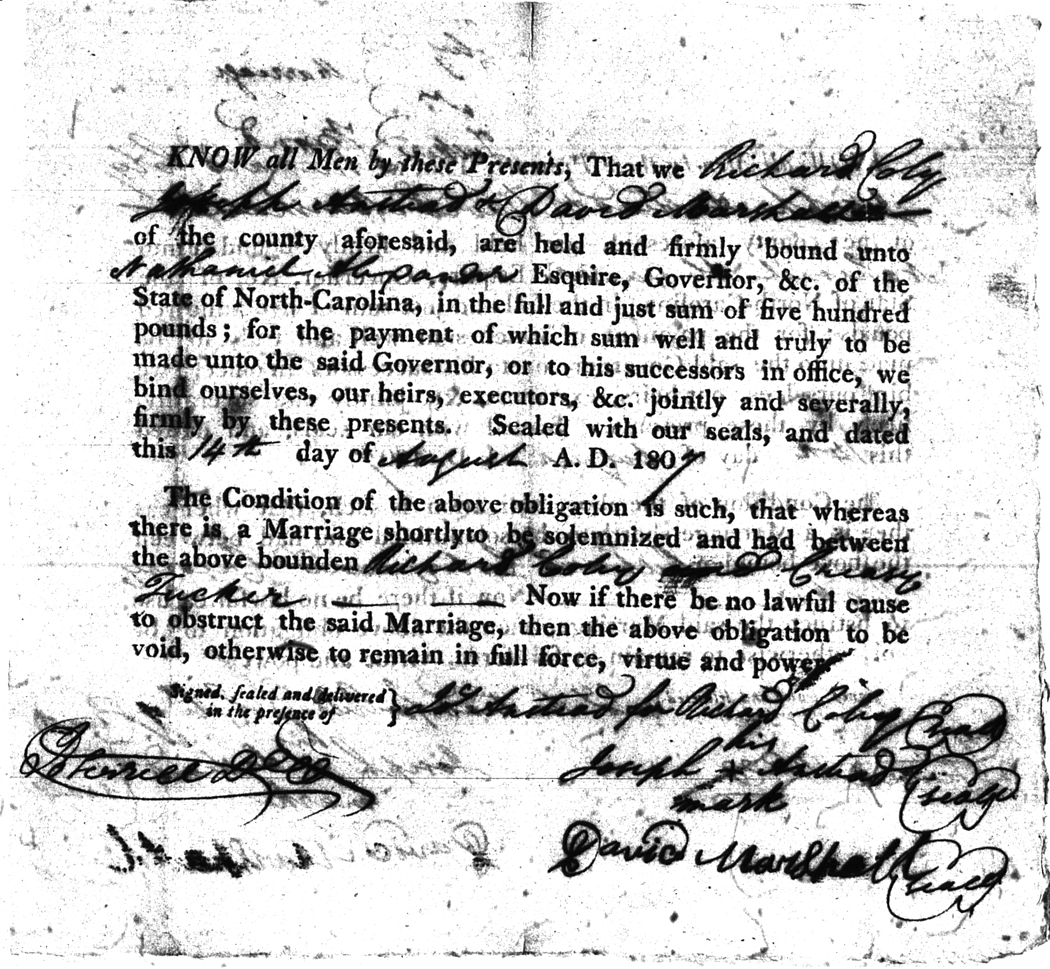 KNOW all Men by these Presents, That we Richard Coby
Joseph Anstead & David Marshall
of the county aforesaid, are held and firmly bound unto
Nathaniel Alexander Esquire, Governor, &c. of the
State of North-Carolina, in the full and just sum of five hundred
pounds; for the payment of which sum well and truly to be
made unto the said Governor, or to his successors in office, we
bind ourselves, our heirs, executors, &c. jointly and severally,
firmly by these presents. Sealed with our seals, and dated
this 14th day of August A. D. 1807
The Condition of the above obligation is such, that whereas
there is a Marriage shortlyto be solemnized and had between
the above bounden Richard Coby and Creasy
Tucker Now if there be no lawful cause
to obstruct the said Marriage, then the above obligation to be
void, otherwise to remain in full force, virtue and power.
Signed, sealed and delivered
in the presence of
Anstead for Richard Coby (seal)
his
Joseph x Anstead (seal)
mark
David Marshall (seal)